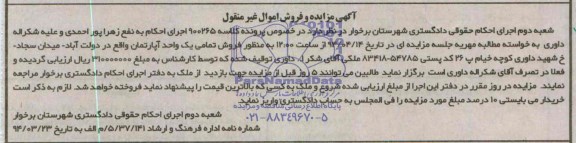 آگهی مزایده و فروش اموال غیر منقول
شعبه دوم اجرای احکام حقوقی دادگستری شهرستان برخوار در نظر دارد در خصوص پرونده کلاسه ۹۰۰۲۶۵ اجرای احکام به نفع زهرا پور احمدی و علیه شکراله
داوری به خواسته مطالبه مهریه جلسه مزایده ای در تاریخ ۹۴/۰۴/۱۴ از ساعت ۱۲:۰۰ به منظور فروش تمامی یک واحد آپارتمان واقع در دولت آباد- میدان سجاد-
خ شهید داوری کوچه خیام پ ۲۶ کد پستی ۵۴۷۸۵-۸۳۴۱۸ ملکی آقای شکراله داوری توقیف شده که توسط کارشناس به مبلغ ۳۱۰۰۰۰۰۰۰ ریال ارزیابی گردیده و
فعلا در تصرف آقای شکراله داوری است برگزار نماید طالبین می توانند ۵ روز قبل از مزایده جهت بازدید از ملک به دفتر اجرای احکام دادگستری برخوار مراجعه
نمایند. مزایده در روز مقرر در دفتر این اجرا از مبلغ ارزیابی شده شروع و ملک به کسی که بالاترین قیمت را پیشنهاد نماید فروخته خواهد شد. لازم به ذکر است
خریدار می بایستی ۱۰ درصد مبلغ مورد مزایده را فی المجلس به حساب دادگستری واریز نماید.
شعبه دوم اجرای احکام حقوقی دادگستری شهرستان برخوار
شماره نامه اداره فرهنگ و ارشاد ۵/۳۷/۱۴۱/م الف به تاریخ ۹۴/۰۳/۲۳
۰۲۱-۸۸۳۴۹۶۷۰-۵